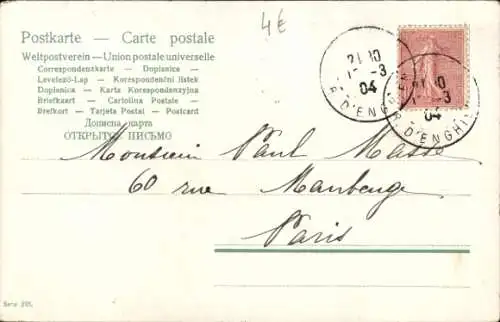 4€
Postkarte — Carte postale
Weltpostverein — Union postale universelle
Correspondenzkarte — Dopisnice
Levelező-Lap — Korespondenční lístek
Dopisnica — Karta Korespondencyjna
Briefkaart — Cartolina Postale
Brefkort — Tarjeta Postal — Postcard
Дописна карта
ОТКРЫТОЕ ПИСЬМО
21 10
-3
04
R. D'ENGHIEN
10
-3
04
R. D'ENGHIEN
Monsieur Paul Masse
60 rue Maubeuge
Paris